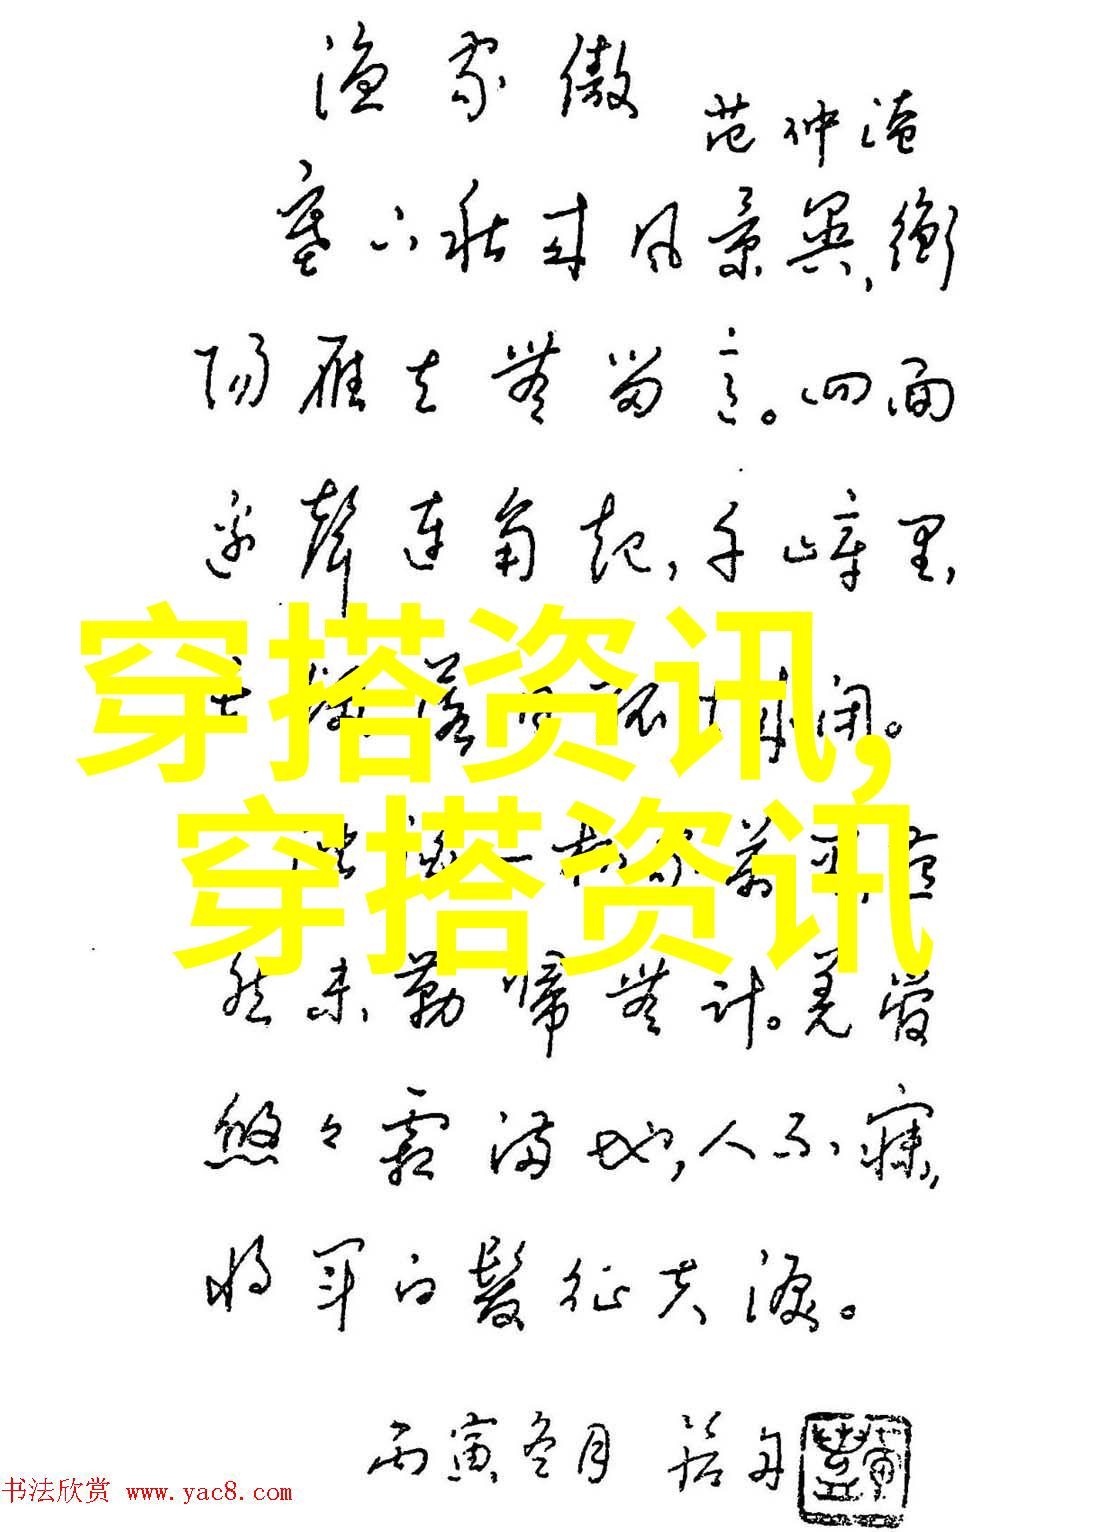 渔家傲
范仲淹
塞下秋来风景异,衡
阳雁去無留意。四面
边聲连角起,千嶂里,
长烟落日孤城闭。
穿搭资讯,
浊酒一杯家萬里,燕
穿搭资讯
然未勒歸無计。羌管
悠々霜满地,人不寐,
将军白髮征夫淚。
丙寅冬月
书法欣赏 www.yac8.com